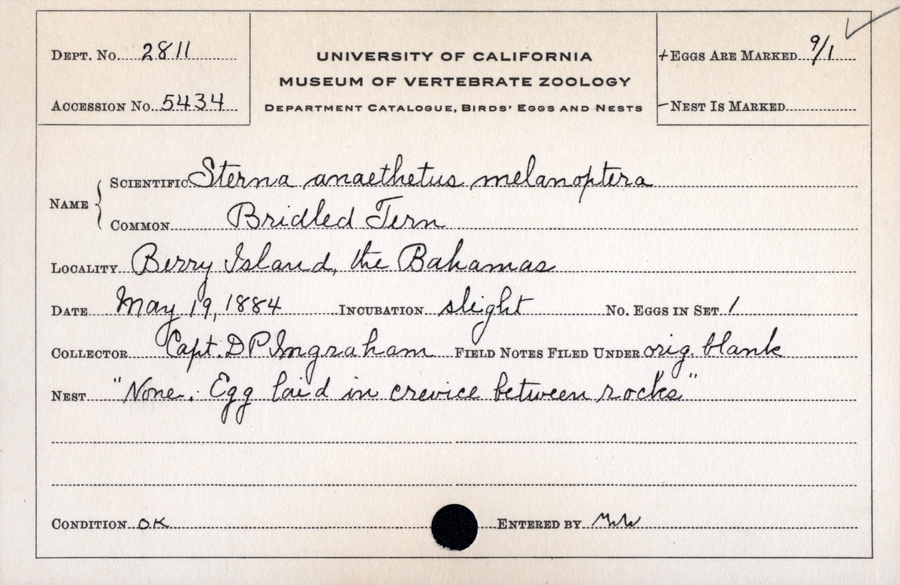 Dept. No. 2811
Accession No. 5434
UNIVERSITY OF CALIFORNIA
MUSEUM OF VERTEBRATE ZOOLOGY
Department Catalogue, Birds' Eggs and Nests
+Eggs Are Marked 9/1
-Nest Is Marked
Name { Scientific Sterna anaethetus melanoptera
Common Bridled Tern
Locality Berry Island, the Bahamas
Date May 19, 1884 Incubation slight No. Eggs in Set 1
Collector Capt. D P Ingraham Field Notes Filed Under orig. blank
Nest "None. Egg laid in crevice between rocks"
Condition OK Entered by